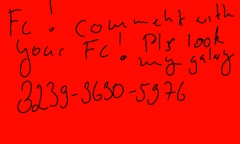 Fc! comment with
your Fc! Pls look
my galay
3239-3630-5976